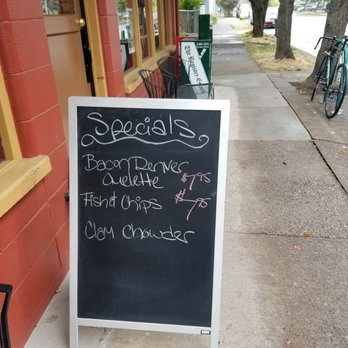 Specials
Bacon Denver
Omelette $7.95
Fish & Chips $7.95
Clam Chowder
The Register-Guard